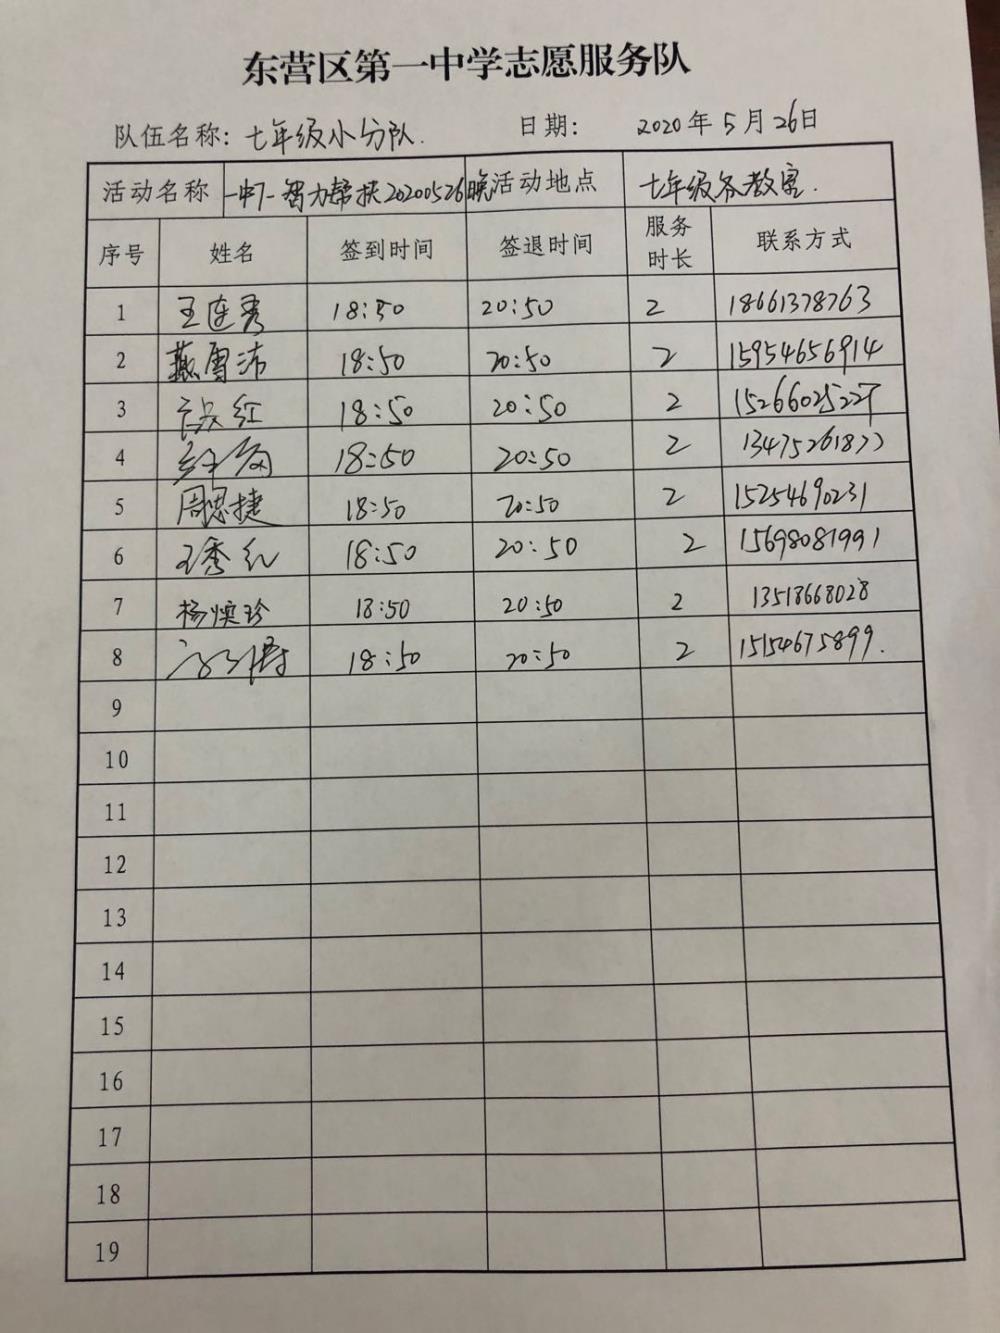 东营区第一中学志愿服务队
队伍名称: 七年级小分队. 日期: 2020年5月26日
活动名称 一中7-智力帮扶20200526晚 活动地点 七年级各教室.
序号 姓名 签到时间 签退时间 服务时长 联系方式
1 王连秀 18:50 20:50 2 18661378763
2 燕雪沛 18:50 20:50 2 15954656914
3 18:50 20:50 2
4 18:50 20:50 2 13475261877
5 周忠捷 18:50 20:50 2 15254690231
6 王秀红 18:50 20:50 2 15698081991
7 杨焕珍 18:50 20:50 2 13518668028
8 18:50 20:50 2 15154675899.
9
10
11
12
13
14
15
16
17
18
19